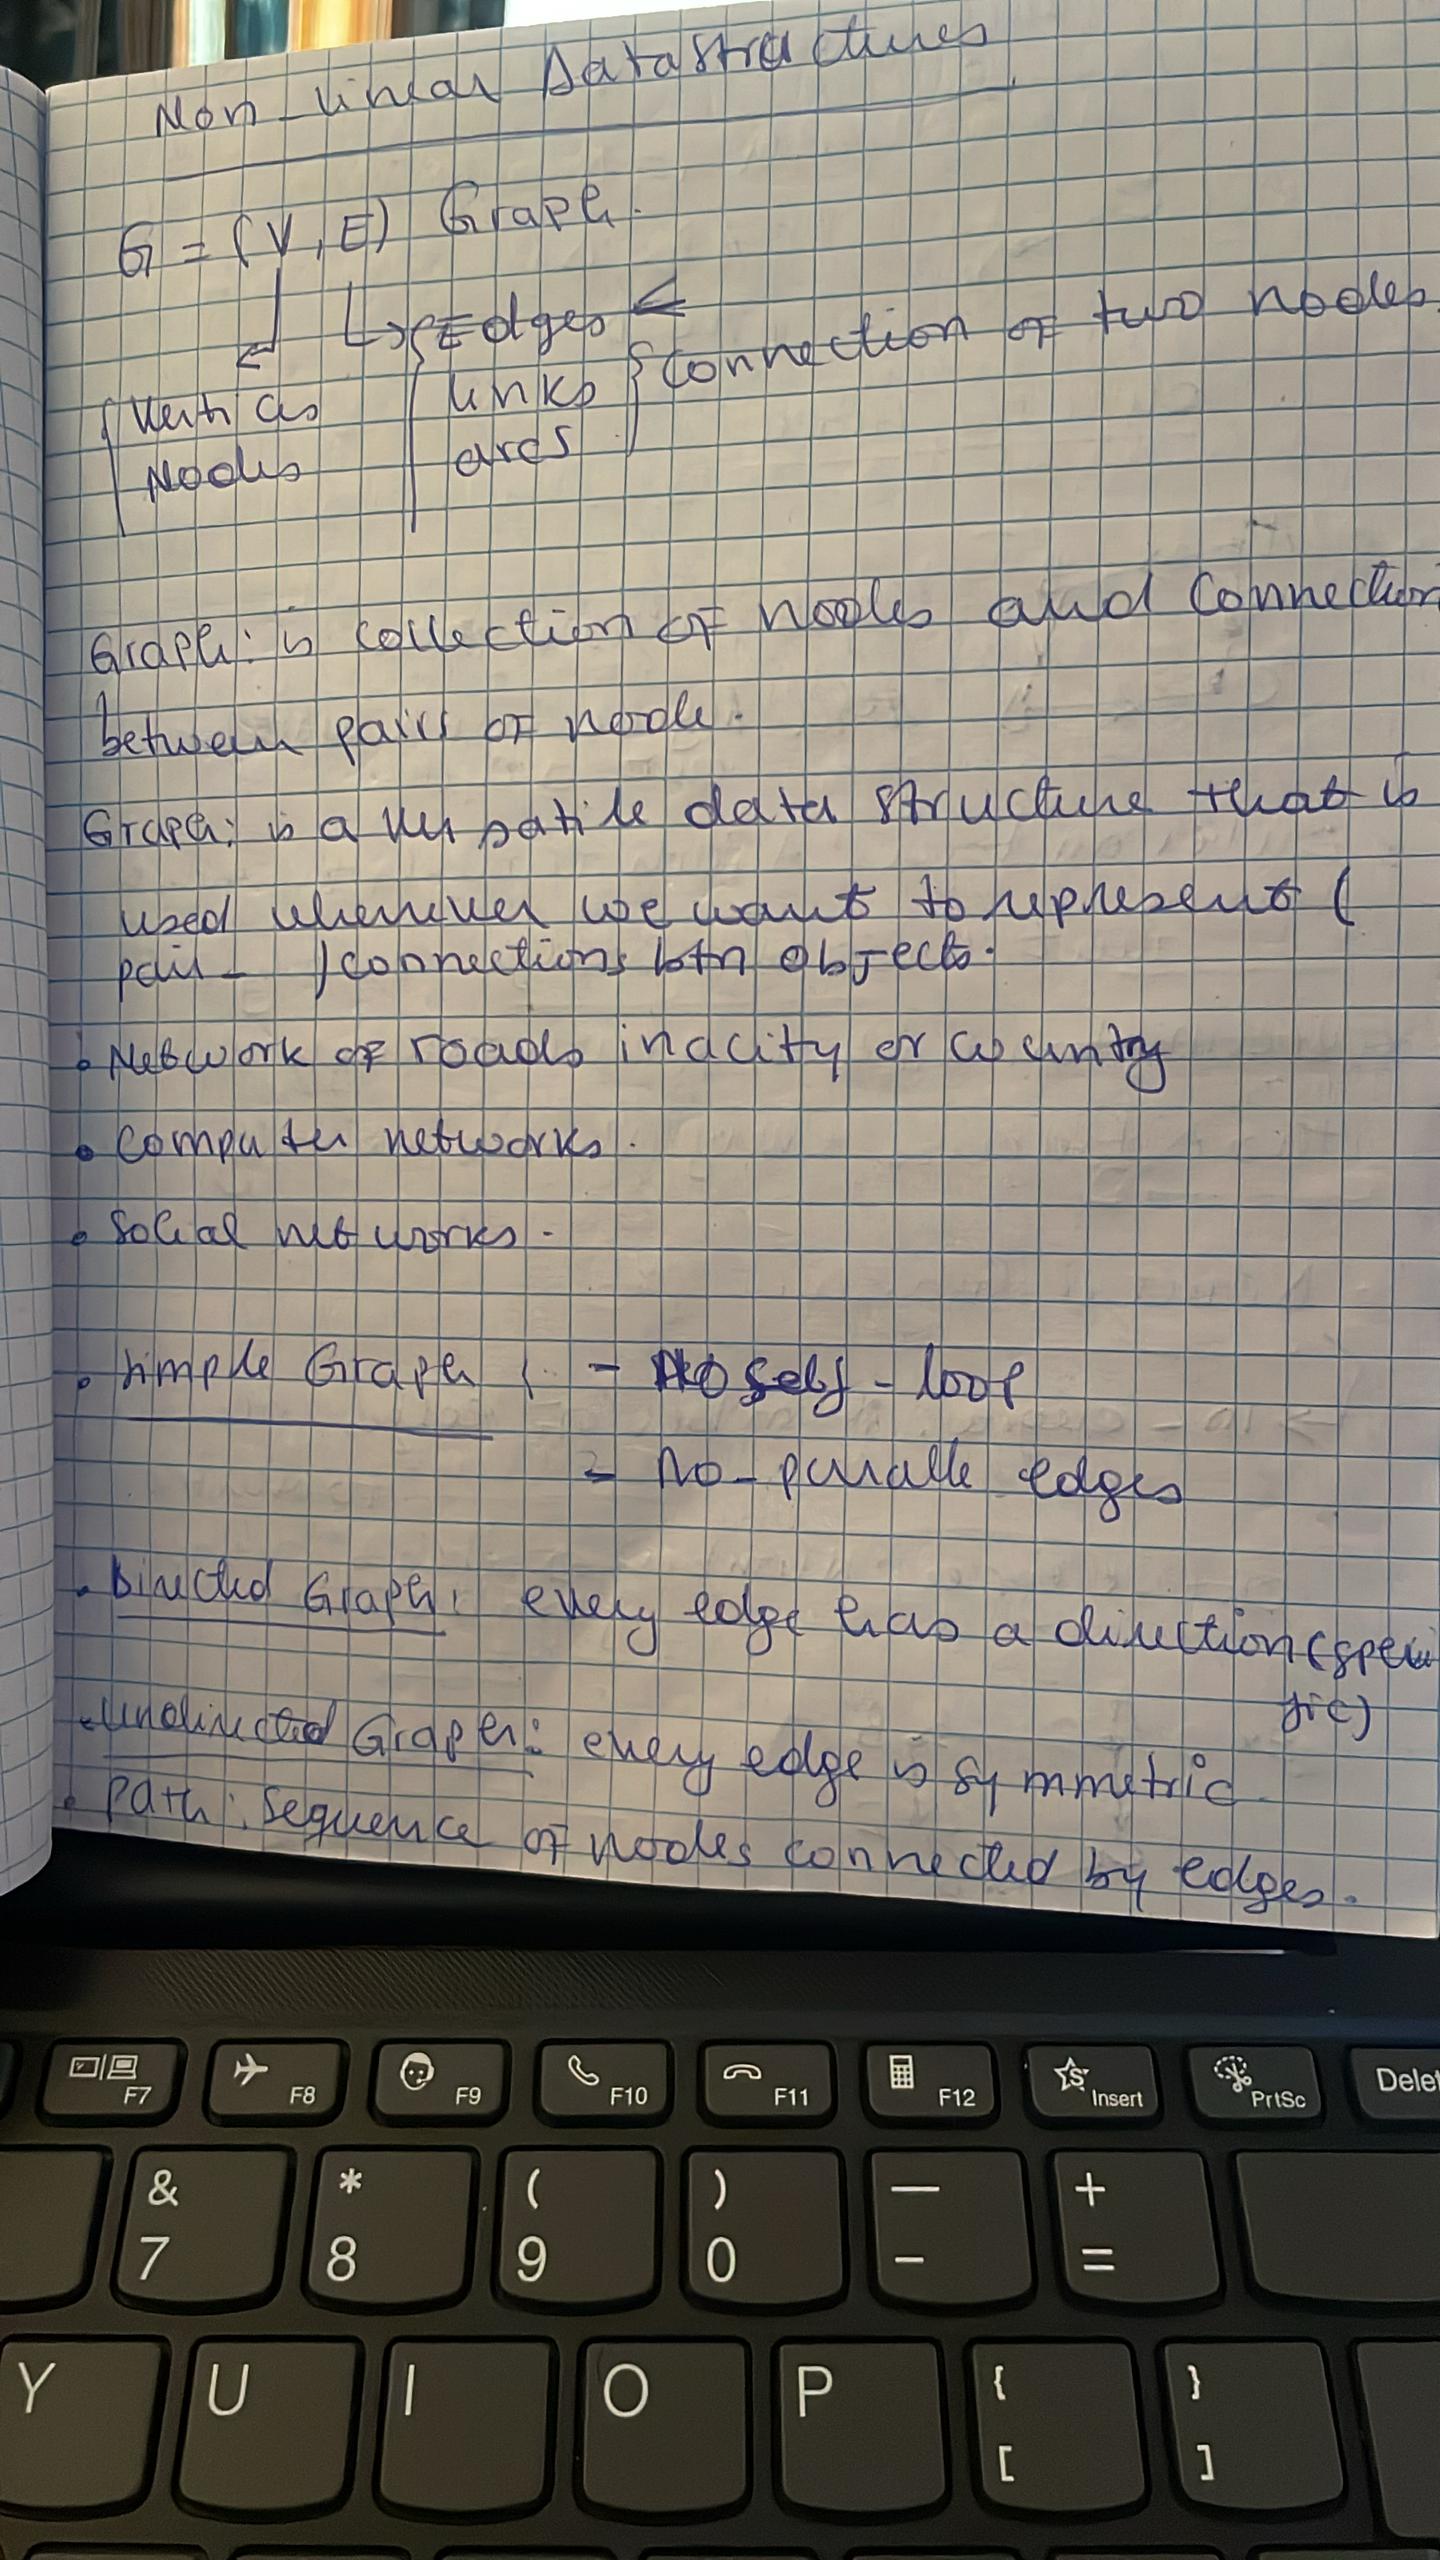 Non-linear Datastructures
G = (V, E) Graph.
Edges ←
Vertices
Nodes
links
arcs
connection of two nodes.
Graph: is collection of nodes and connection
between pairs of node.
Graph: is a versatile data structure that is
used whenever we want to represent (
pair- ) connections btn objects.
• Network of roads in a city or country
• computer networks.
• Social networks.
• simple Graph : - No self-loop
- No-paralle edges
• Directed Graph: every edge has a direction (speci
fic)
• undirected Graph: every edge is symmetric
• path: sequence of nodes connected by edges.
F7 F8 F9 F10 F11 F12 Insert PrtSc Delet
& * ( ) — +
7 8 9 0 - =
Y U I O P { }
[ ]